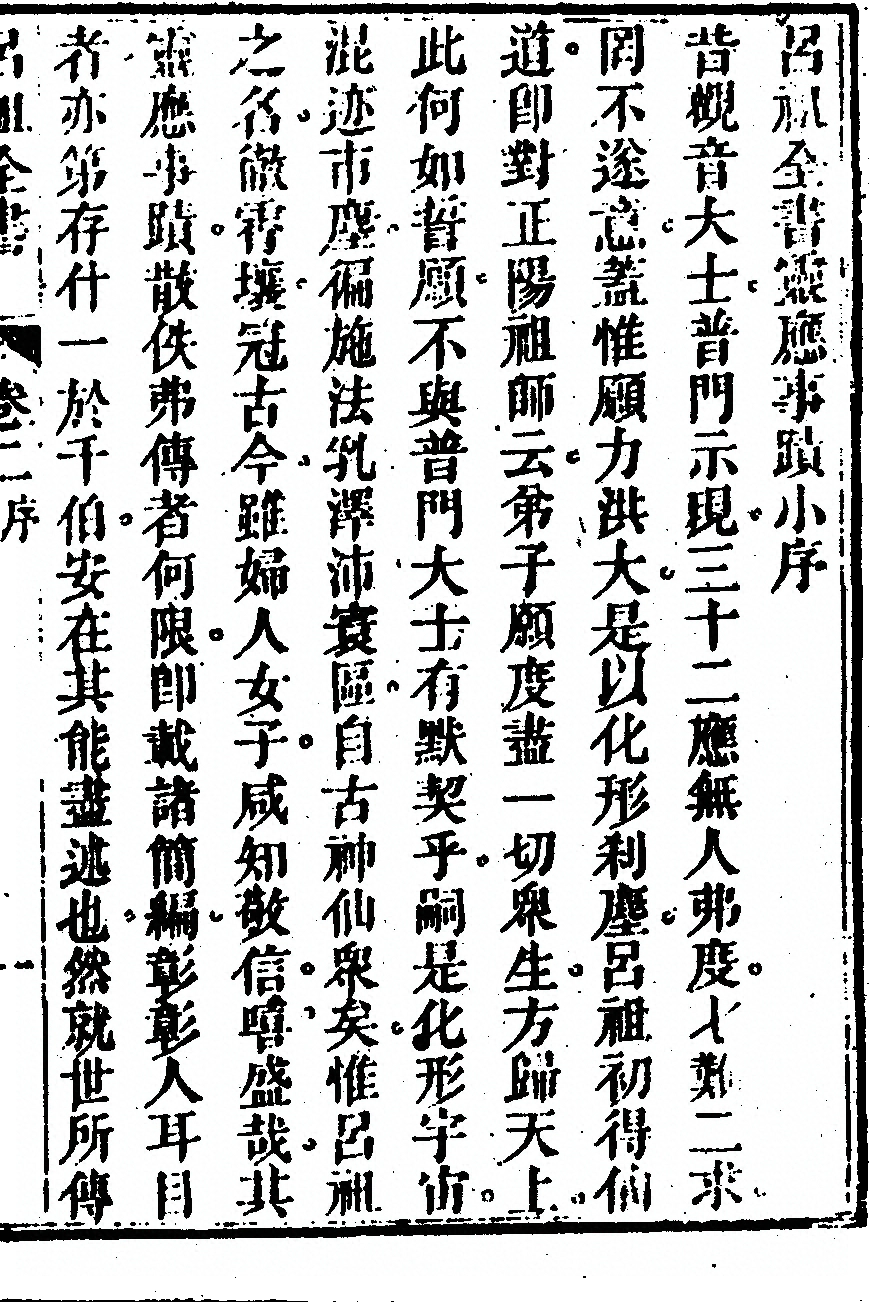 呂祖全書靈應事蹟小序
昔觀音大士。普門示現。三十二應無人弗度。七難二求。
罔不遂意。蓋惟願力洪大。是以化形刹塵。呂祖初得仙
道。即對正陽祖師云。弟子願度盡一切眾生。方歸天上。
此何如誓願。不與普門大士有默契乎。嗣是化形宇宙。
混迹市塵。徧施法乳澤沛寰區。自古神仙眾矣。惟呂祖
之名。徹霄壤。冠古今。雖婦人女子。咸知敬信。嘻。盛哉。其
靈應事蹟。散佚弗傳者何限。即載諸簡編。彰彰人耳目
者亦第存什一於千伯。安在其能盡述也。然就世所傳
呂祖全書 卷二 序 一